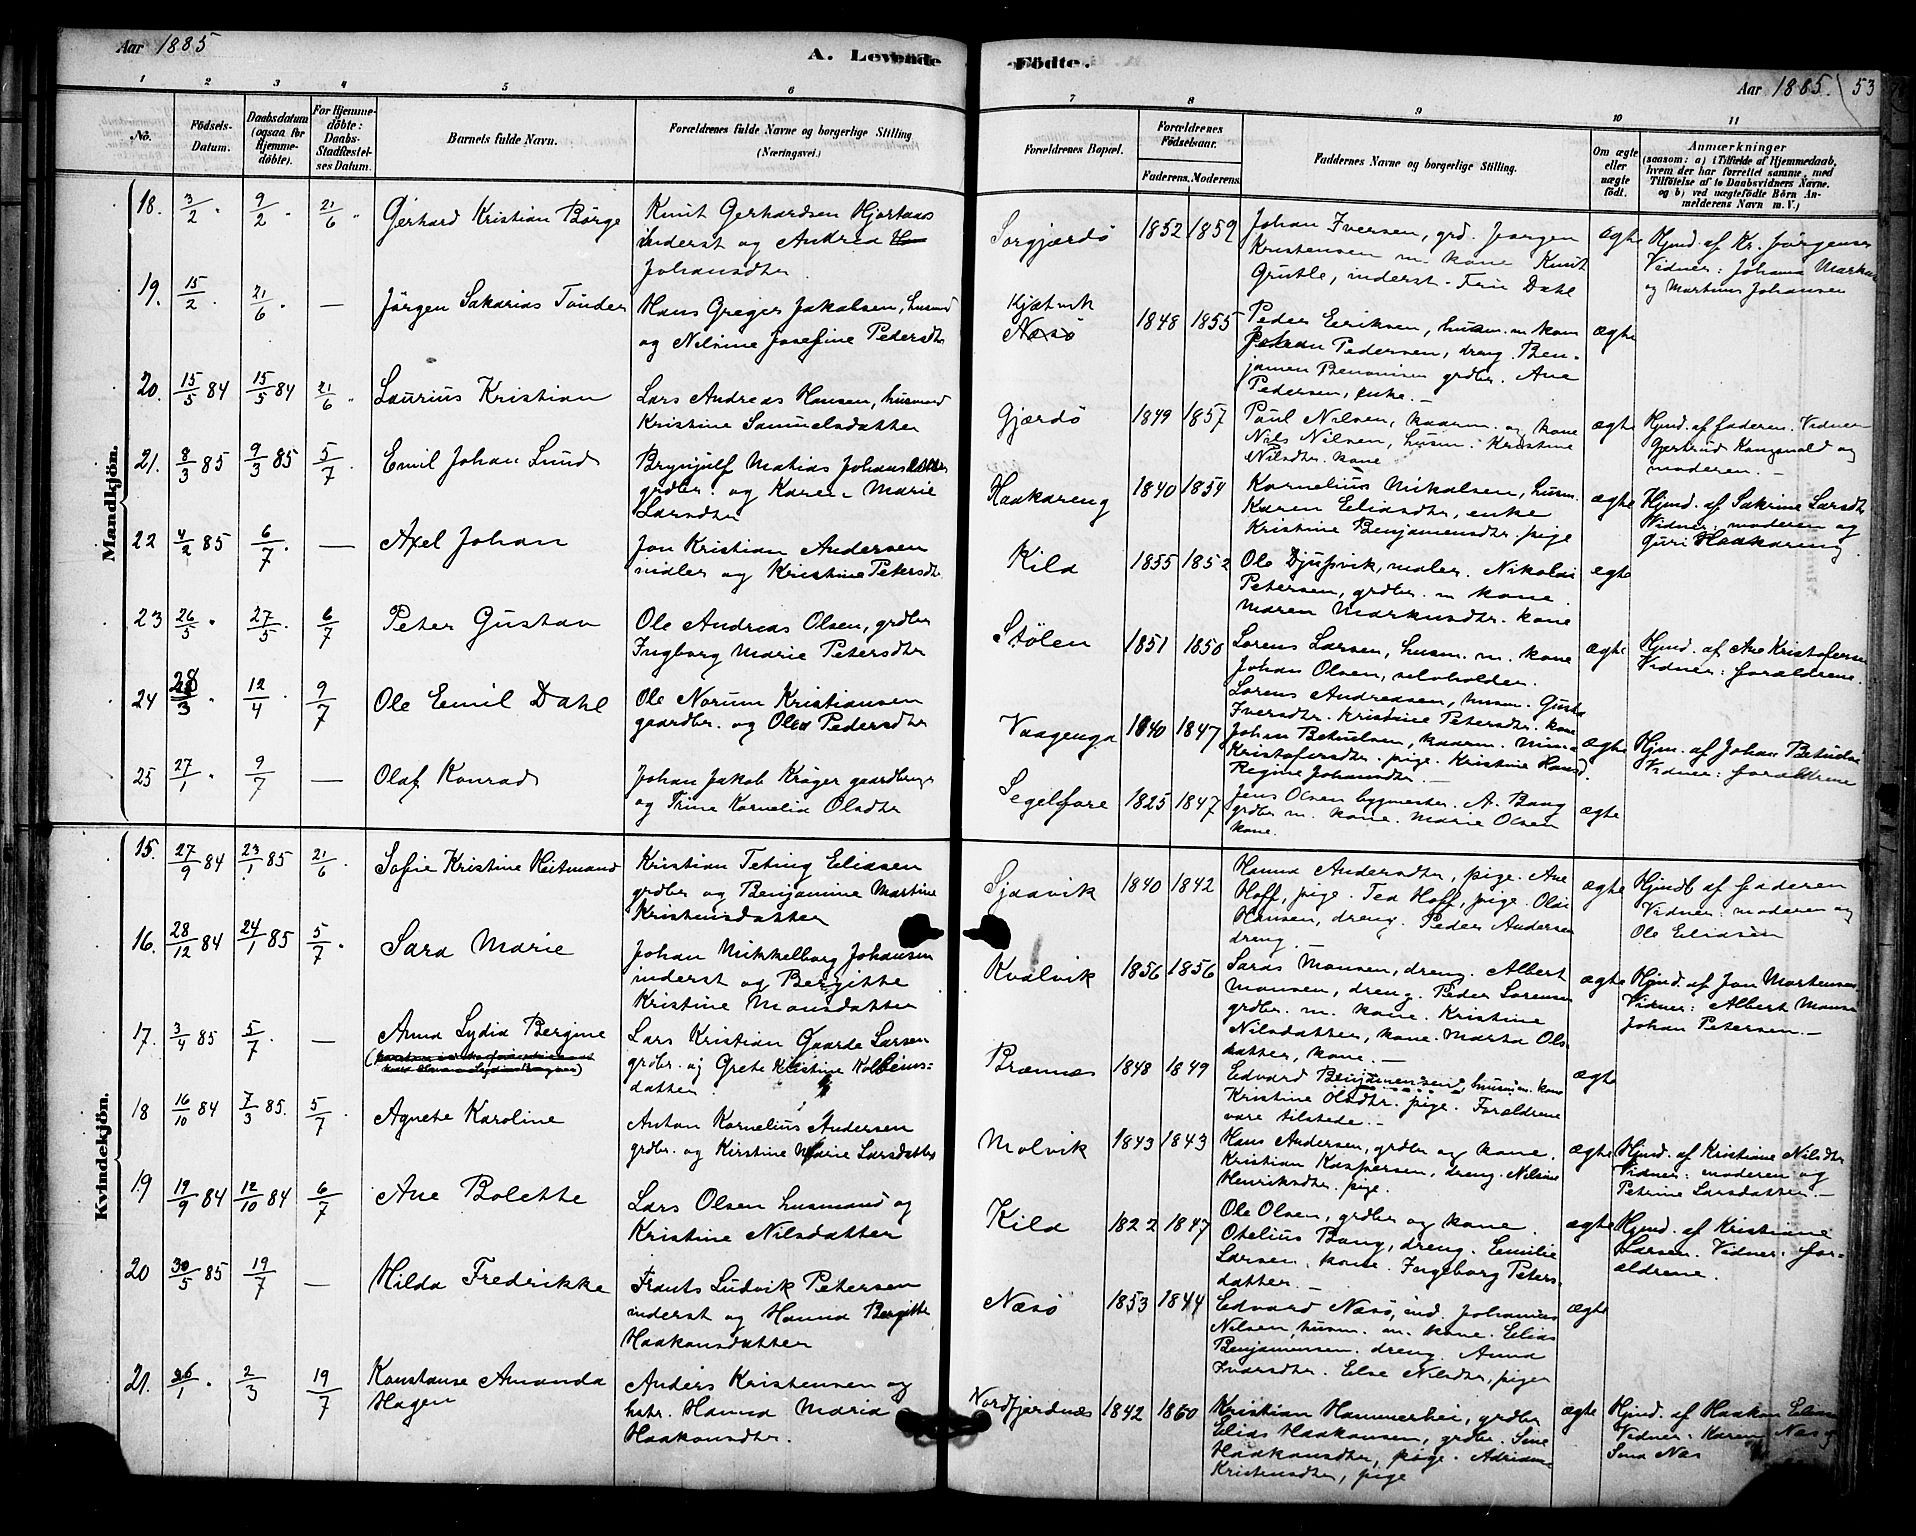 Aar 1885
A. Levende
Födte.
Aar 1885.
53
1 2 3 4 5 6 7 8 9 10 11
No.
Födsels-
Datum.
Daabsdatum
(ogsaa for
Hjemme-
döbte).
For Hjemme-
döbte:
Daabs-
Stadfæstel-
ses Datum.
Barnets fulde Navn.
Forældrenes fulde Navne og borgerlige Stilling
(Næringsvei.)
Forældrenes Bopæl.
Forældrenes
Födselsaar.
Faderens. Moderens.
Faddernes Navne og borgerlige Stilling.
Om ægte
eller
uægte
födt.
Anmærkninger
(saasom: a) i Tilfælde af Hjemmedaab,
hvem der har forrettet samme, med
Tilföielse af to Daabsvidners Navne.
og b) ved uægtefödte Börn An-
melderens Navn m. V.)
Mandkjön.
18. 3/2 9/2 . 21/6 . Gerhard Kristian Börge
Knut Gerhardsen Hjortaas
inderst og Andrea
Johansdtr.
Sorgjærdö 1852 1859
Johan Iversen, grd. Jørgen
Kristensen m. kone Knut
Grutle, inderst. Frue Dahl
ægte
Hjmd. af Kr. Jörgensen
Vidner: Johana Markus
og Martinus Johansen
19. 15/2 21/6 . — Jörgen Sakarias Tönder
Hans Greger Jakobsen, husmd
og Nilsine Josefine Pedersdtr
Kjætvik
Næsö
1848 1855
Peder Eriksen, husm. m kone
Johan Pedersen, dreng. Ben-
jamen Benonisen grdbr. Ane
Pedersen, enke. —
ægte
20. 15/5 84 15/5 84 21/6 . Laurius Kristian
Lars Andreas Hansen, husmand
Kristine Samuelsdatter
Gjærdö 1849 1857
Paul Nilsen, kaarm. og kone
Nils Nilsen, husm. Kristine
Nilsdtr. kone
ægte
Hjmd. af faderen. Vidner
Gjertrud Kongsvald og
moderen. —
21. 8/3 85 9/3 85 5/7 Emil Johan Lund
Brynjulf Matias Johansen
grdbr. og Karen Marie
Larsdtr
Haakareng 1840 1854
Kornelius Mikalsen, husm.
Karen Eliasdtr, enke
Kristine Benjamensdtr. pige
ægte
Hjmd. af Sakrine Larsdtr
Vidner: moderen og
Guri Haakareng
22 4/2 85 6/7 . — Axel Johan
Jon Kristian Andersen
indler og Kristine Petersdtr.
Kila 1855 1852
Ole Djupvik, maler. Nikolai
Petersen, grdbr. m kone.
Maren Markusdtr. kone
ægte
23 26/5 . 27/5 . 6/7 Peter Gustav
Ole Andreas Olsen, grdbr
Ingborg Marie Petersdtr
Stölen 1851 1850
Lorens Larsen, husm. m. kone
Johan Olsen, selvholder.
Lorens Andreasen, husm. Gusta
Iversdtr. Kristine Petersdtr. kone
ægte
Hjmd. af Ane Kristofersen
Vidner: forældrene.
24 28/3 . 12/4 . 9/7 Ole Emil Dahl
Ole Norum Kristiansen
gaardbr. og Olea Pedersdtr
Vaagenga 1840 1847
Johan Betuelsen, kaarm. Nina
Kristofersdtr. pige. Kristine Hans
Regine Johansdtr. —
ægte
Hjm. af Johan Betuelsen
Vidner: forældrene
25 27/1 . 9/7 — Olaf Konrad
Johan Jakob Kröger gaardbruger
og Trine Kornelia Olsdtr
Segelfore 1825 1847
Jens Olsen bygmester. A. Bang
grdbr m. kone. Marie Olsen
kone.
ægte
Kvindekjön.
15. 27/9 84 23/1 85 21/6 . Sofie Kristine Heitmand
Kristian Teting Eliassen
grdbr og Benjamine Martine
Kristensdatter
Sjaavik 1840 1842
Hanna Andersdtr, pige. Ane
Hoff, pige. Tea Hoff, pige. Olai
Hansen, dreng. Peder Andersen
dreng. —
ægte
Hjmdb af faderen
Vidner: moderen og
Ole Eliasen
16. 28/12 84 24/1 85 5/7 . Sara Marie
Johan Mikkelborg Johansen
inderst og Bergitte
Kristine Monsdatter
Kvalvik 1856 1856
Saras Monsen, dreng. Albert
Monsen, dreng. Peder Sorensen
grdbr. m. kone. Kristine
Nilsdatter, kone. Marta Ols-
datter, kone. —
ægte
Hjmd. af Jon Mortensen
Vidner: Albert Monsen
Johan Petersen. —
17. 3/4 85 5/7 — Anna Lydia Bergine
Lars Kristian Gaarde Larsen
grdbr. og Grete Kristine Kolbeins-
datter
Brænnæs 1848 1849
Edvard Benjamensen, husm m. kone
Kristine Olsdtr. pige. Forældrene
vare tilstede. —
ægte
18 16/10 84 7/3 85. 5/7 Agnete Karoline
Anton Kornelius Andersen
grdbr. og Kirstine Marie Larsdatter
Molvik 1843 1843
Hans Andersen, grdbr og kone.
Kristian Kaspersen, dreng. Nilsine
Henriksdtr. pige.
ægte
Hjmd. af Kristiane Nilsdtr
Vidner: moderen og
Petrine Larsdatter. —
19 19/9 84 12/10 84 6/7 Ane Bolette
Lars Olsen husmand og
Kristine Nilsdatter
Kila 1822 1847
Ole Olsen, grdbr og kone
Otelius Bang, dreng. Emilie
Larsen, kone. Ingeborg Peters-
datter. —
ægte
Hjmd. af Kristiane
Larsen. Vidner: for-
ældrene.
20 30/5 85 19/7 — Hilda Fredrikke
Frants Ludvik Petersen
inderst og Hanna Bergitte
Haakonsdatter
Næsö 1853 1844
Edvard Næsö, ind. Johannes
Nilsen, husm. m. kone. Elias
Benjamensen. dreng. Anna
Ivarsdtr. Else Nilsdtr, piger
ægte
21. 26/1 . 2/3 19/7 Konstanse Amanda
Hagen
Anders Kristensen og
hstr. Hanna Maria
Haakonsdtr.
Nordfjordnæs 1842 1860
Kristian Hammerhei, grdbr
Elias Haakonsen, grdbr. Sine
Haakonsdtr, pige. Adriane
Kristensdtr, pige
ægte
Hjmd. af Haakon
Vidner: Karen Næs og
Sena Næs